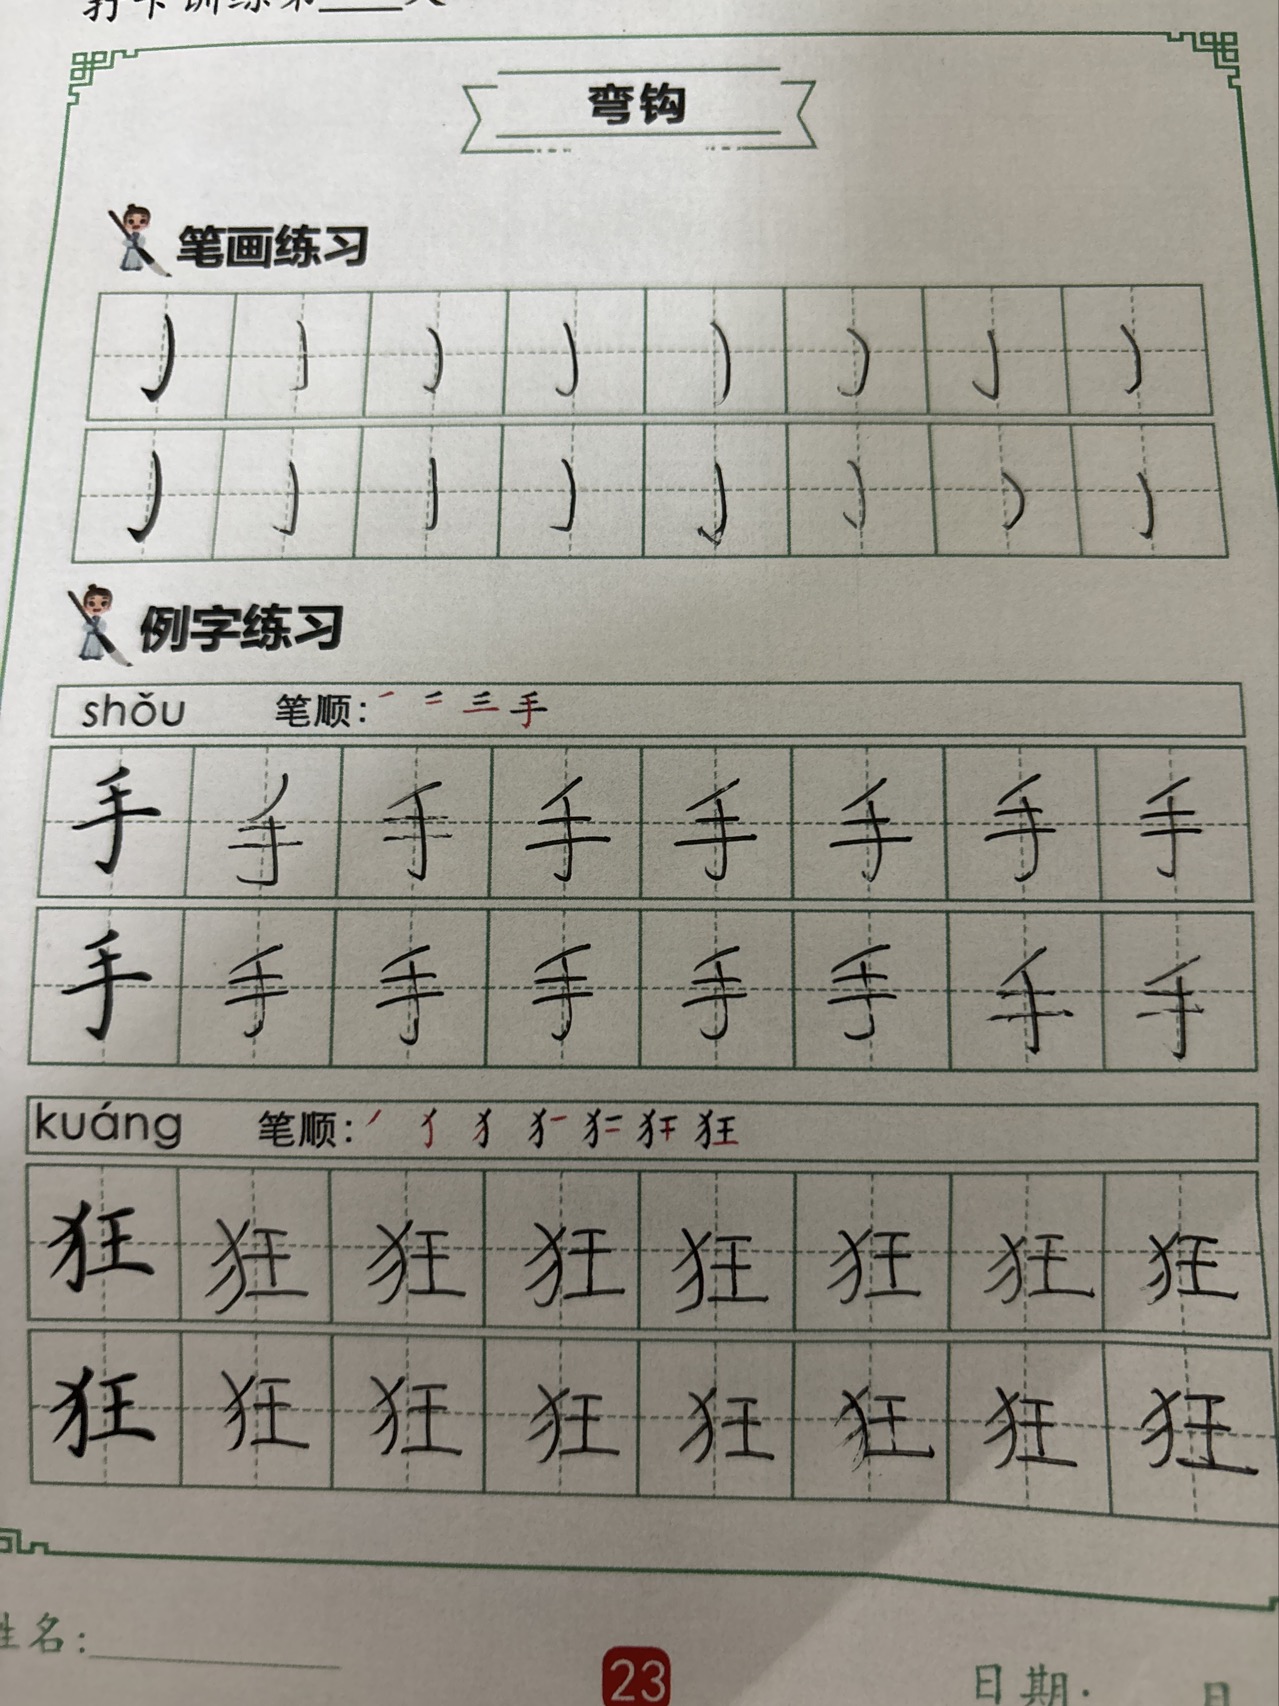 打卡训练第____天
弯钩
笔画练习
例字练习
shǒu 笔顺：一 二 三 手
手 手 手 手 手 手 手 手
手 手 手 手 手 手 手 手
kuáng 笔顺：丿 犭 狂
狂 狂 狂 狂 狂 狂 狂 狂
狂 狂 狂 狂 狂 狂 狂 狂
姓名：____ 23 日期：